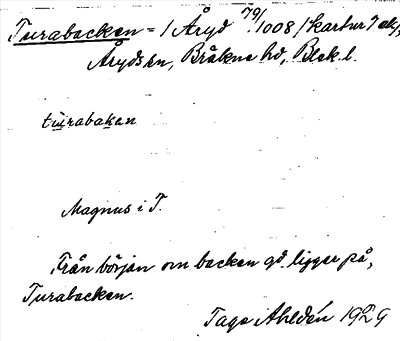 Turabacken = 1 Åryd 79/1008 /kartur
Åryds sn, Bräkne hd, Blek. l.
tuirabaken
Magnus i T.
Från början om backen gd. ligger på,
Turabacken.
Tage Ahldén 1929